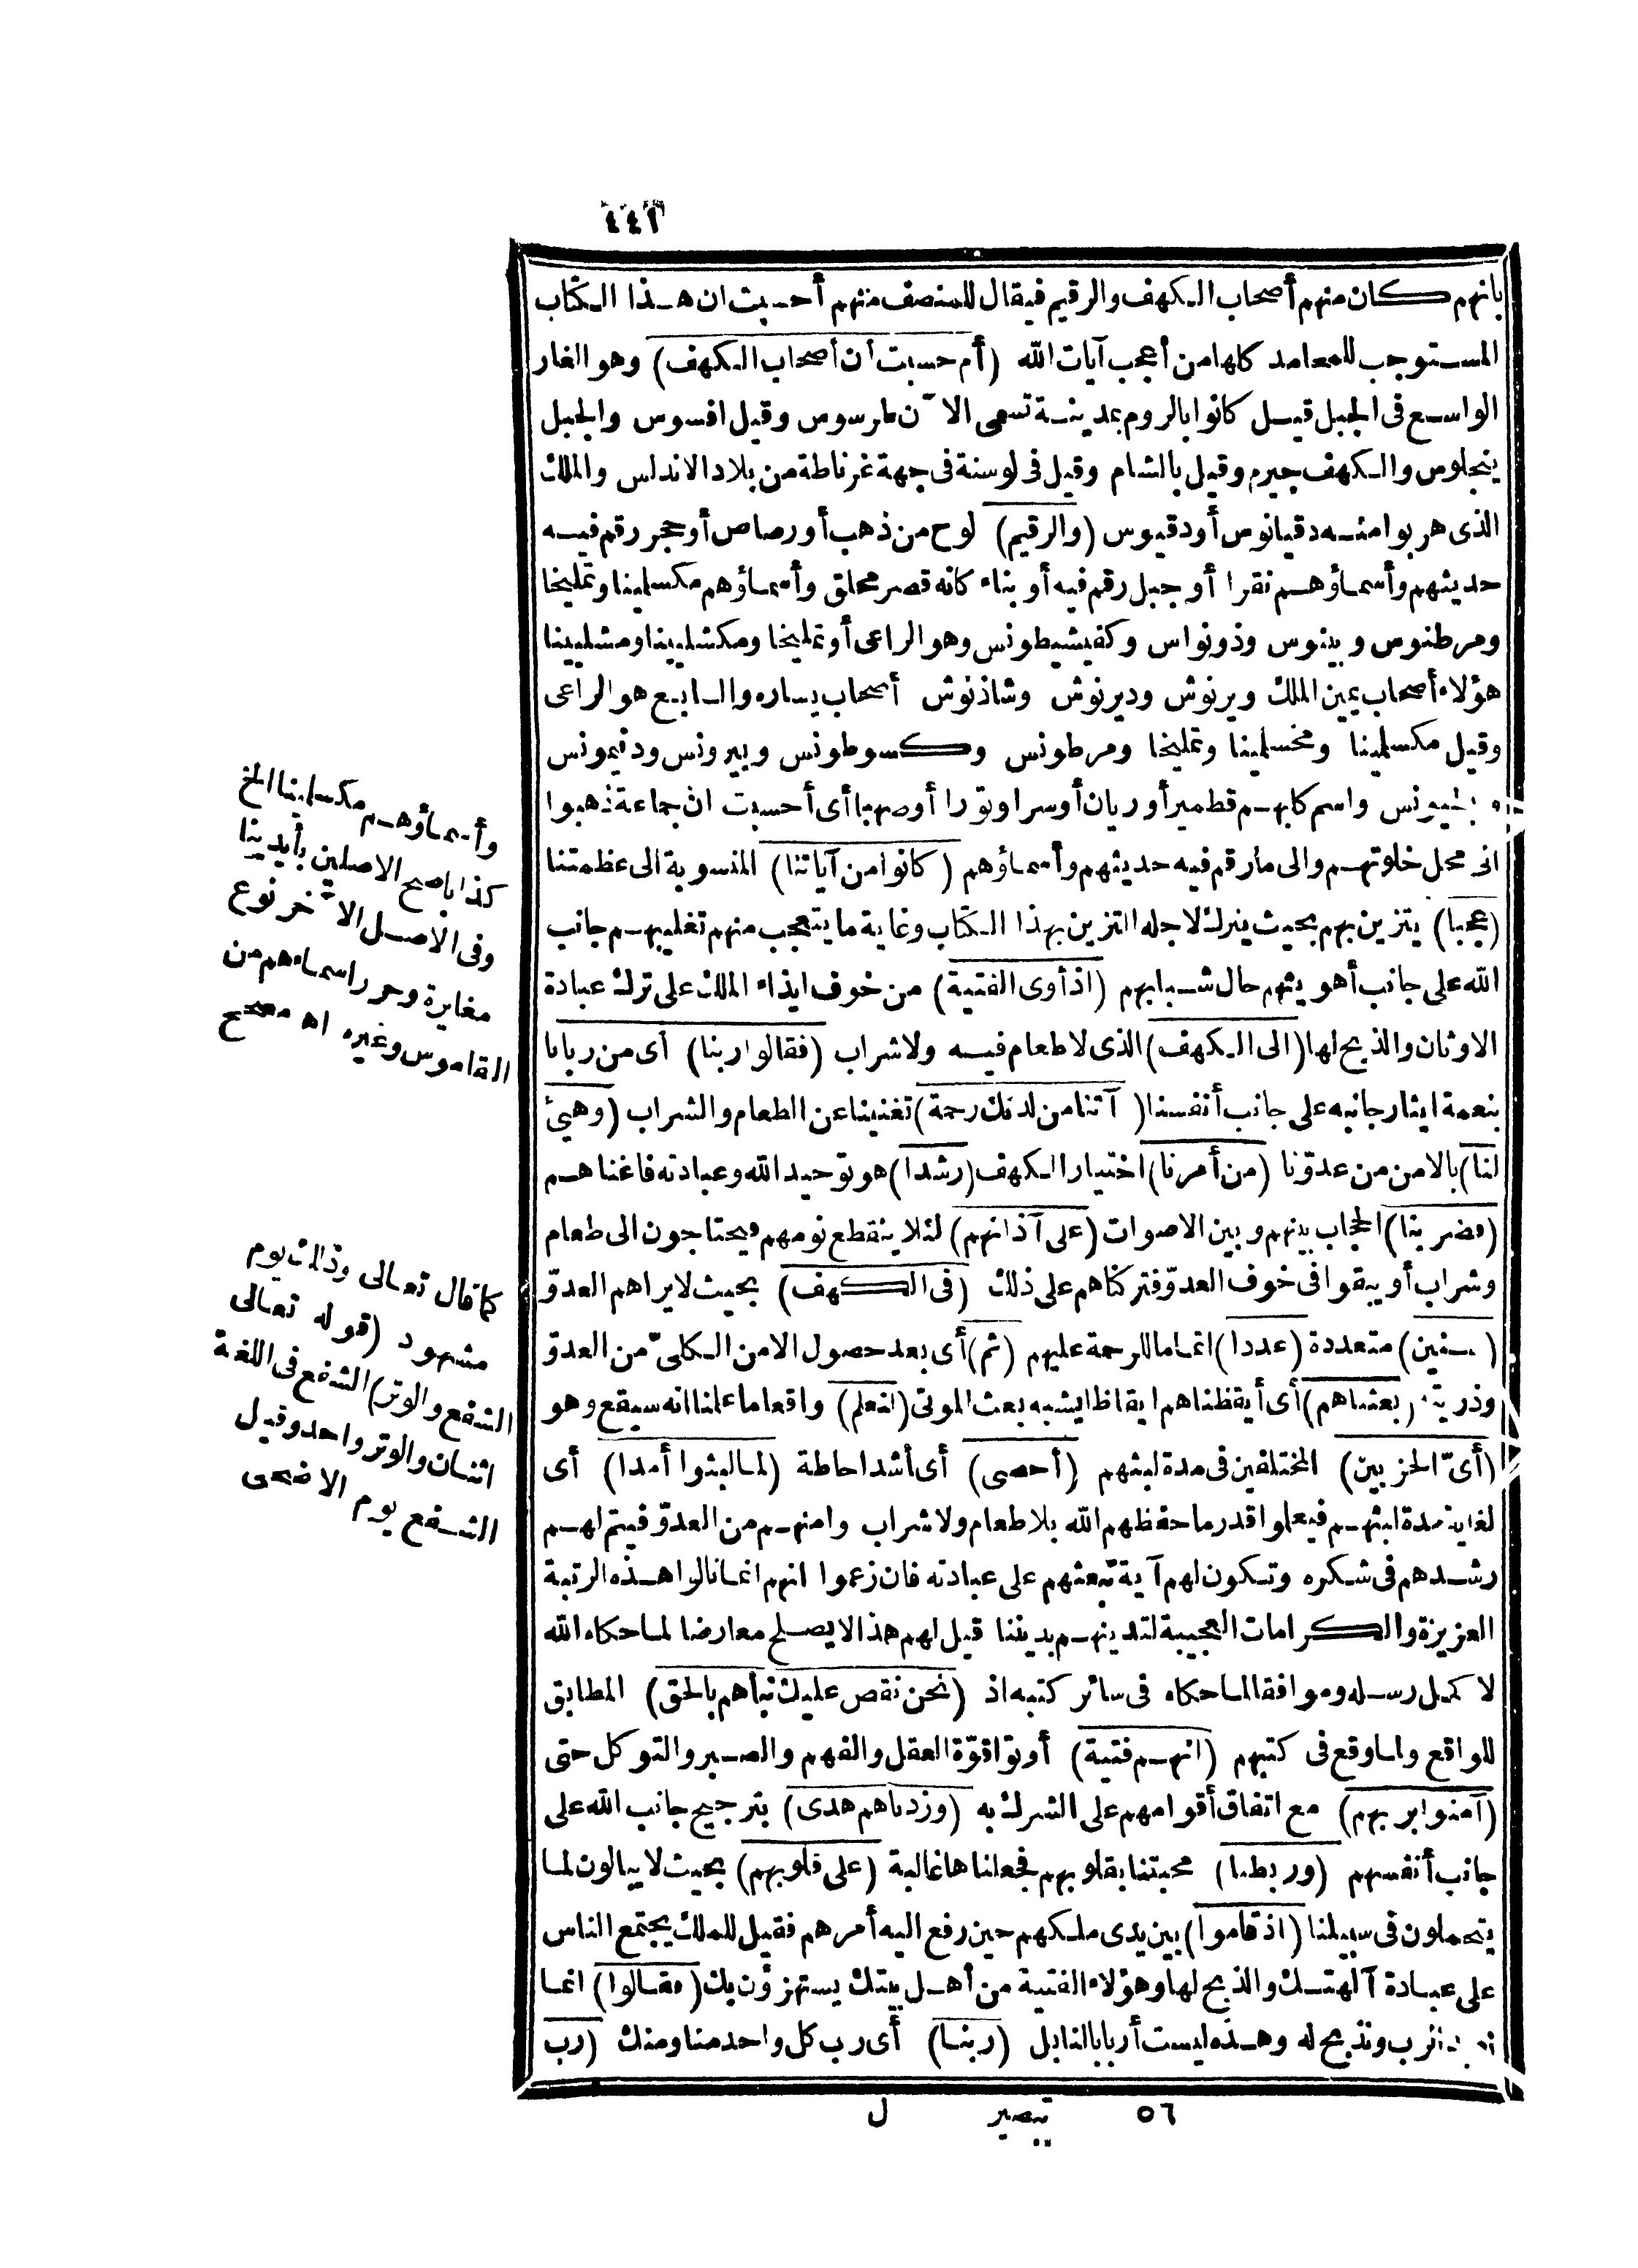 ٤٤١
بانهم كان منهم أصحاب الكهف والرقيم فيقال للمنصف منهم أحسبت ان هذا الكتاب
المستوجب للمحامد كلها من أعجب آيات الله (أم حسبت أن أصحاب الكهف) وهو الغار
الواسع فى الجبل قيل كانوا بالروم بمدينة تسمى الآن طرسوس وقيل افسوس والجبل
ينجلوس والكهف جيرم وقيل بالشام وقيل فى لوسنة فى جهة غرناطة من بلاد الاندلس والملك
الذى هربوا منه دقيانوس أو دقيوس (والرقيم) لوح من ذهب أو رصاص أو حجر رقم فيه
حديثهم وأسماؤهم نقرا أو جبل رقم فيه أو بناء كانه قصر محلق وأسماؤهم مكسلينا وتمليخا
ومرطنوس وبينوس وذونواس وكفيشيطونس وهو الراعى أو تمليخا ومكشلينا ومشلينا
هؤلاء أصحاب يمين الملك وبرنوش ودبرنوش وشاذنوش أصحاب يساره والسابع هو الراعى
وقيل مكسلمينا ومخسلمينا وتمليخا ومرطونس وكسوطونس وبيرونس ودنيمونس
واسم كلبهم قطمير أو ريان أو سرا وتورا أو صهبا أى أحسبت ان جماعة ذهبوا
الى محل خلوتهم والى ما رقم فيه حديثهم وأسماؤهم (كانوا من آياتنا) المنسوبة الى عظمتنا
(عجبا) يتزين بهم بحيث يترك لاجله التزين بهذا الكتاب وغاية ما يتعجب منهم تغليبهم جانب
الله على جانب أهويتهم حال شبابهم (اذ أوى الفتية) من خوف ايذاء الملك على ترك عبادة
الاوثان والذبح لها (الى الكهف) الذى لا طعام فيه ولا شراب (فقالوا ربنا) أى من ربانا
بنعمة ايثار جانبه على جانب أنفسنا (آتنا من لدنك رحمة) تغنينا عن الطعام والشراب (وهيئ
لنا) بالامن من عدوّنا (من أمرنا) اختيار الكهف (رشدا) هو توحيد الله وعبادته فاغناهم
(فضربنا) الحجاب بينهم وبين الاصوات (على آذانهم) لئلا ينقطع نومهم فيحتاجون الى طعام
وشراب أو يبقوا فى خوف العدوّ فتركناهم على ذلك (فى الكهف) بحيث لا يراهم العدوّ
(سنين) متعددة (عددا) اتماما للرحمة عليهم (ثم) أى بعد حصول الامن الكلىّ من العدوّ
وذريته (بعثناهم) أى أيقظناهم ايقاظا يشبه بعث الموتى (لنعلم) واقعا ما علمنا انه سيقع وهو
(أىّ الحزبين) المختلفين فى مدة لبثهم (أحصى) أى أشد احاطة (لما لبثوا أمدا) أى
لغاية مدة لبثهم فيعلموا قدر ما حفظهم الله بلا طعام ولا شراب وامنهم من العدوّ فيتم لهم
رشدهم فى شكره وتكون لهم آية تبعثهم على عبادته فان زعموا انهم انما نالوا هذه الرتبة
العزيزة والكرامات العجيبة لتدينهم بديننا قيل لهم هذا لا يصلح معارضا لما حكاه الله
لا كمل رسله وموافقا لما حكاه فى سائر كتبه اذ (نحن نقص عليك نبأهم بالحق) المطابق
للواقع ولما وقع فى كتبهم (انهم فتية) أوتوا قوّة العقل والفهم والصبر والتوكل حتى
(آمنوا بربهم) مع اتفاق أقوامهم على الشرك به (وزدناهم هدى) بترجيح جانب الله على
جانب أنفسهم (وربطنا) محبتنا بقلوبهم فجعلناها غالبة (على قلوبهم) بحيث لا يبالون لما
يتحملون فى سبيلنا (اذ قاموا) بين يدى ملكهم حين رفع اليه أمرهم فقيل للملك يجتمع الناس
على عبادة آلهتك والذبح لها وهؤلاء الفتية من أهل بيتك يستهزؤن بك (فقالوا) انما
الرب ونذبح له وهذه ليست أربابا لنا بل (ربنا) أى رب كل واحد منا ومنك (رب
وأسماؤهم مكسلينا الخ
كذا باصح الاصلين بأيدينا
وفى الأصل الآخر نوع
مغايرة وحرر اسماءهم من
القاموس وغيره اه مصحح
كما قال تعالى وذلك يوم
مشهود (قوله تعالى
الشفع والوتر) الشفع فى اللغة
اثنان والوتر واحد وقيل
الشفع يوم الاضحى
٥٦ تبصير ل